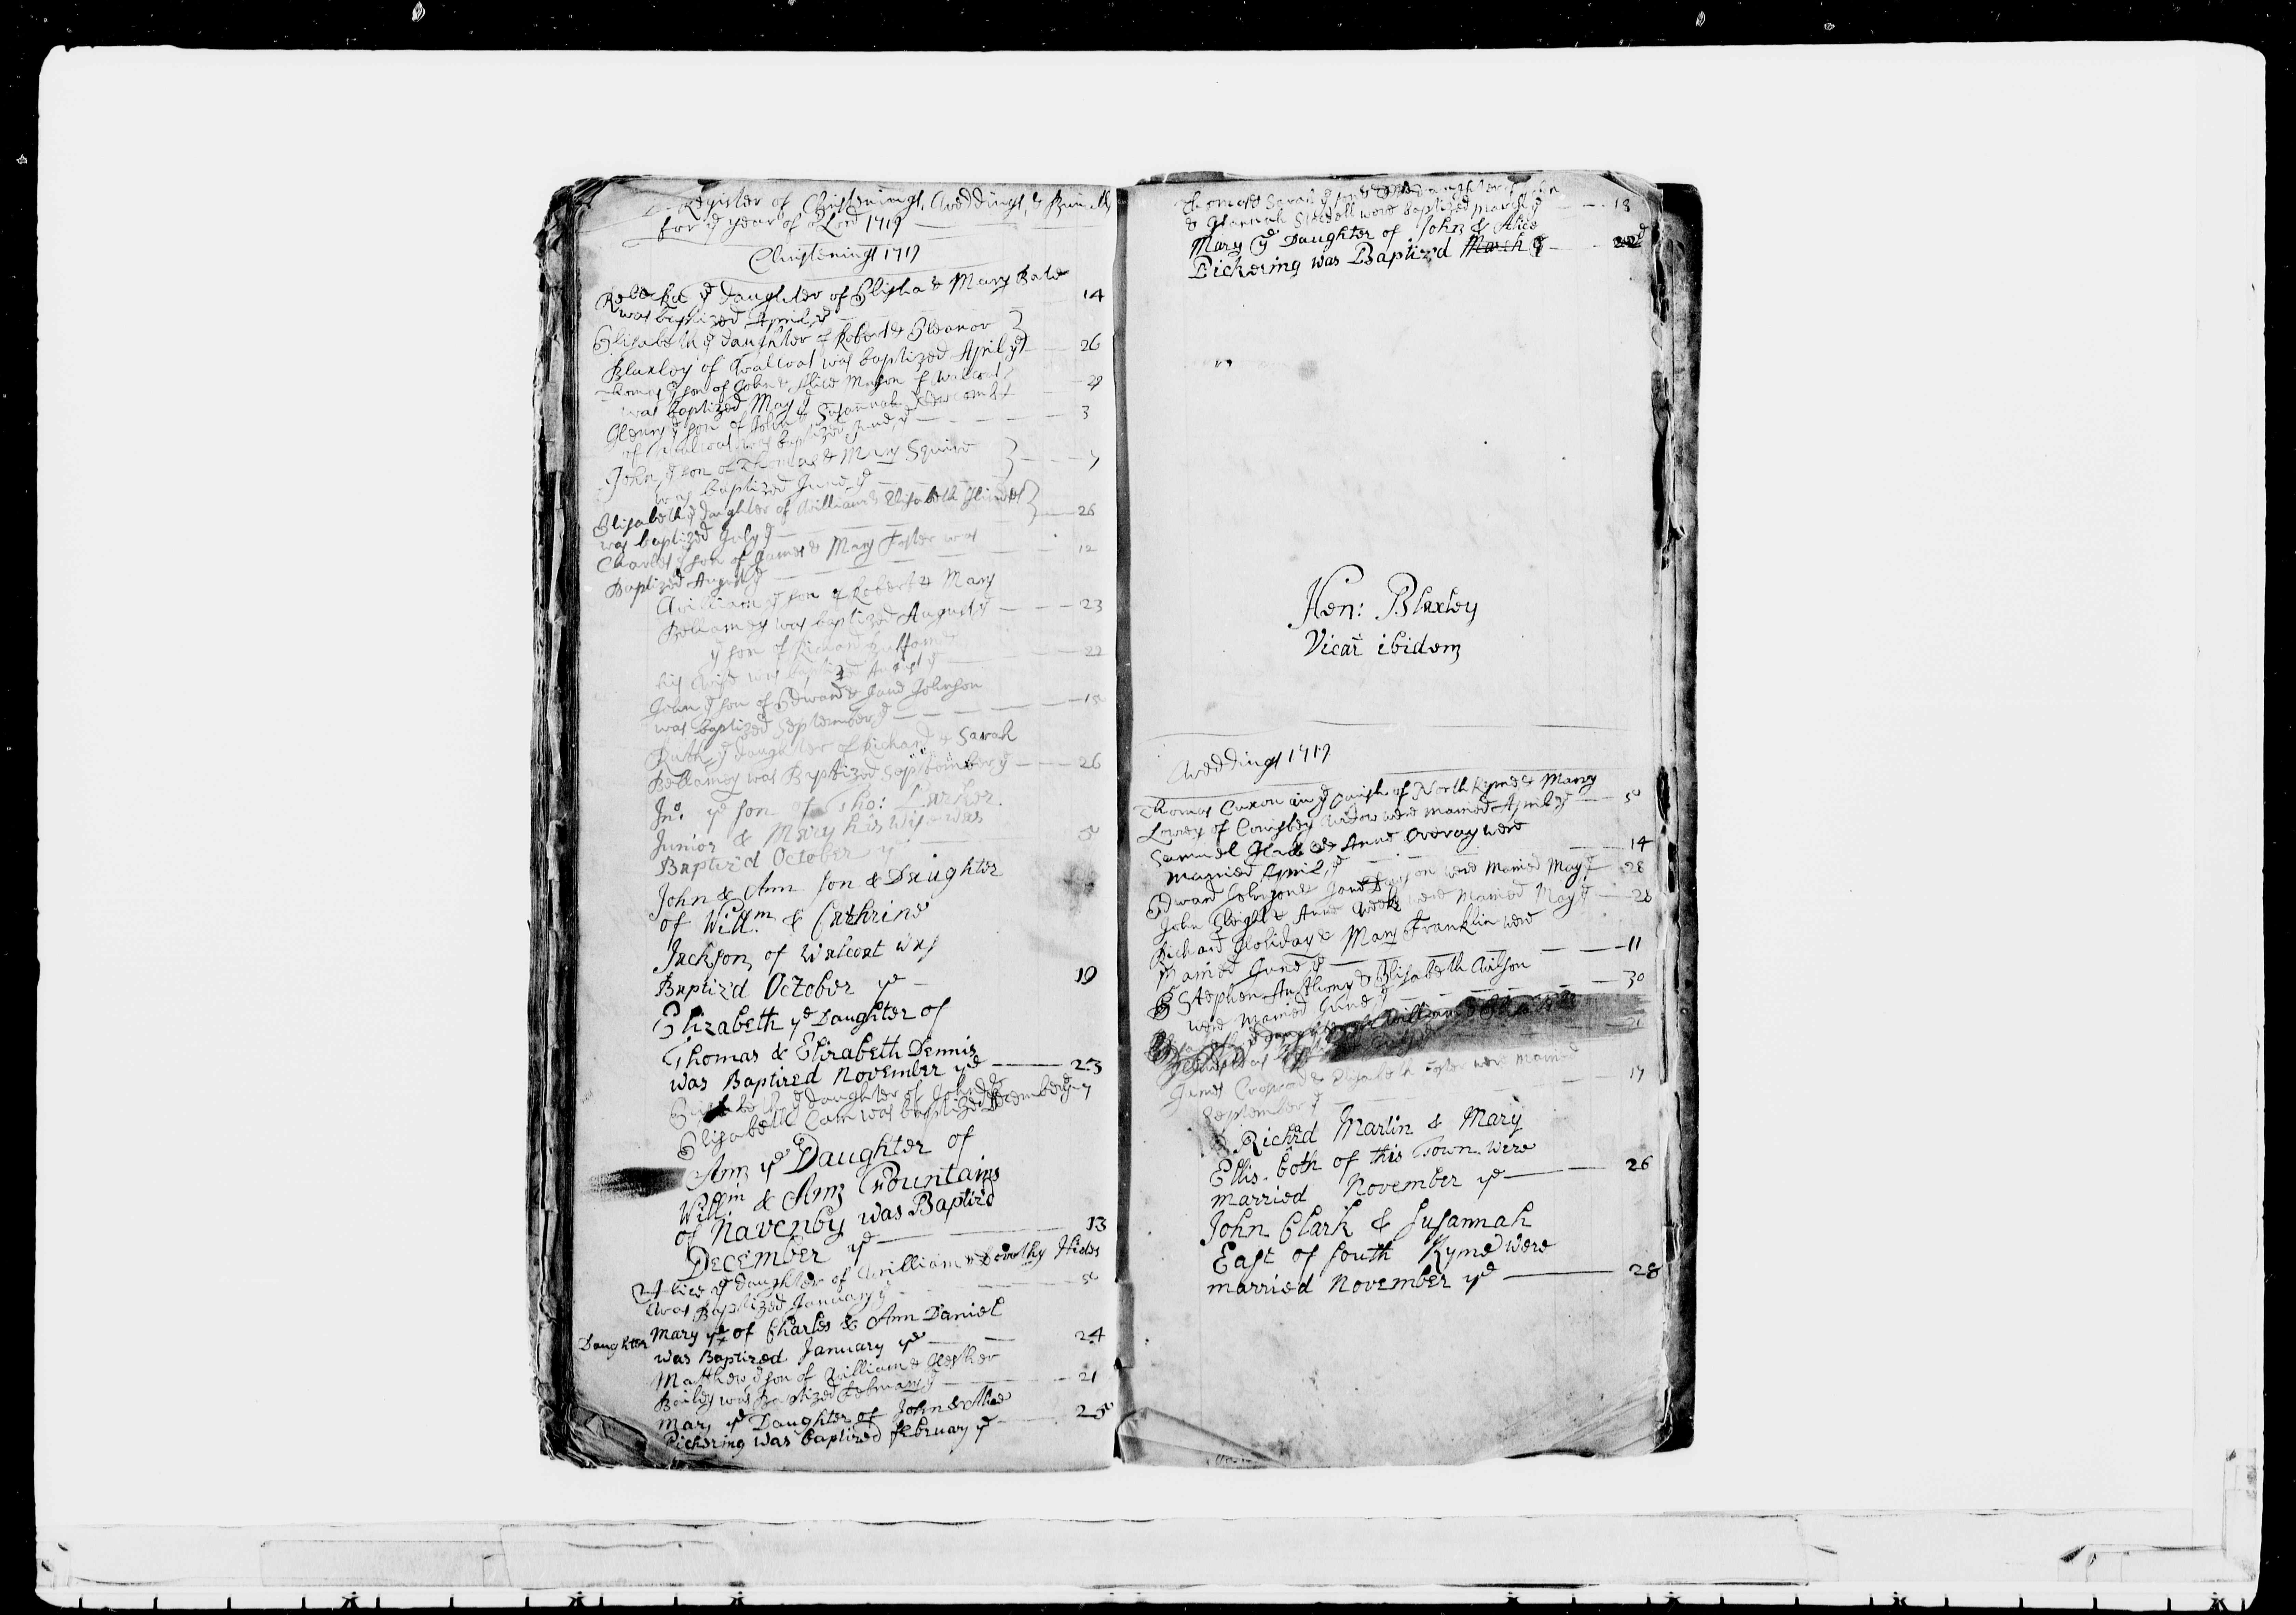 Register of Christenings, Weddings, & Burialls
for yᵉ year of oʳ Lord 1719
Christenings 1719
Rebecka yᵉ daughter of Elisha & Mary Bate
was baptized April yᵉ 14
Elisabeth yᵉ daughter of Robert & Eleanor
Blaxley of Walcot was baptized April yᵉ 26
Thomas yᵉ son of John & Alice Mason of Walcot
was baptized May yᵉ 29
Henry yᵉ son of John & Susannah
of Walcot was baptized June yᵉ 3
John yᵉ son of Thomas & Mary Squire
was baptized June yᵉ 7
Elisabeth yᵉ daughter of William & Elisabeth
was baptized July yᵉ 26
Charles yᵉ son of James & Mary Foster was
Baptized August yᵉ 12
William yᵉ son of Robert & Mary
Bellamy was baptized August yᵉ 23
yᵉ son of Richard
his Wife was baptized August yᵉ 22
John yᵉ son of Edward & Jane Johnson
was baptized September yᵉ 15
Ruth yᵉ daughter of Richard & Sarah
Bellamy was Baptized September yᵉ 26
Jnᵒ. yᵉ son of Tho: Parker
Junior & Mary his Wife was
Baptiz'd October yᵉ 5
John & Ann son & Daughter
of Willᵐ. & Cathrine
Jackson of Walcoat was
Baptiz'd October yᵉ 19
Elizabeth yᵉ Daughter of
Thomas & Elizabeth Dennis
was Baptized November yᵉ 23
Elisabeth yᵉ daughter of John &
Elisabeth Cam was baptized December yᵉ 7
Ann yᵉ Daughter of
Willᵐ & Ann Fountains
of Navenby was Baptiz'd
December yᵉ 13
Alice yᵉ daughter of William & Dorothy Hides
was Baptized January yᵉ 5
Daughter Mary yᵉ of Charles & Ann Daniel
was Baptized January yᵉ 24
Matthew yᵉ son of William & Hesther
Bailey was Baptized February yᵉ 21
Mary yᵉ Daughter of John & Alice
Pickering was baptized february yᵉ 25
Thomas & Sarah yᵉ son & daughter of John
& Hannah were baptized March yᵉ 18
Mary yᵉ Daughter of John & Alice
Pickering was Baptiz'd March yᵉ 22ᵈ
Hen: Blaxley
Vicar ibidem
Weddings 1719
Thomas Cuxon in yᵉ parish of North Kyme & Mary
Lowry of Conisbey Widow were married April yᵉ 5
Samuel & Anne Overay were
married April yᵉ 14
Edward Johnson & Jane were Married May yᵉ 28
John Sleight & Anne were Married May yᵉ 28
Richard Holiday & Mary Franklin were
Married June yᵉ 11
Stephen Anthony & Elisabeth Wilson
were Married June yᵉ 30
James & Elisabeth Foster were married
September yᵉ 17
Richᵈ Martin & Mary
Ellis. both of this Town. were
married November yᵉ 26
John Clark & Susannah
East of South Kyme were
married November yᵉ 28